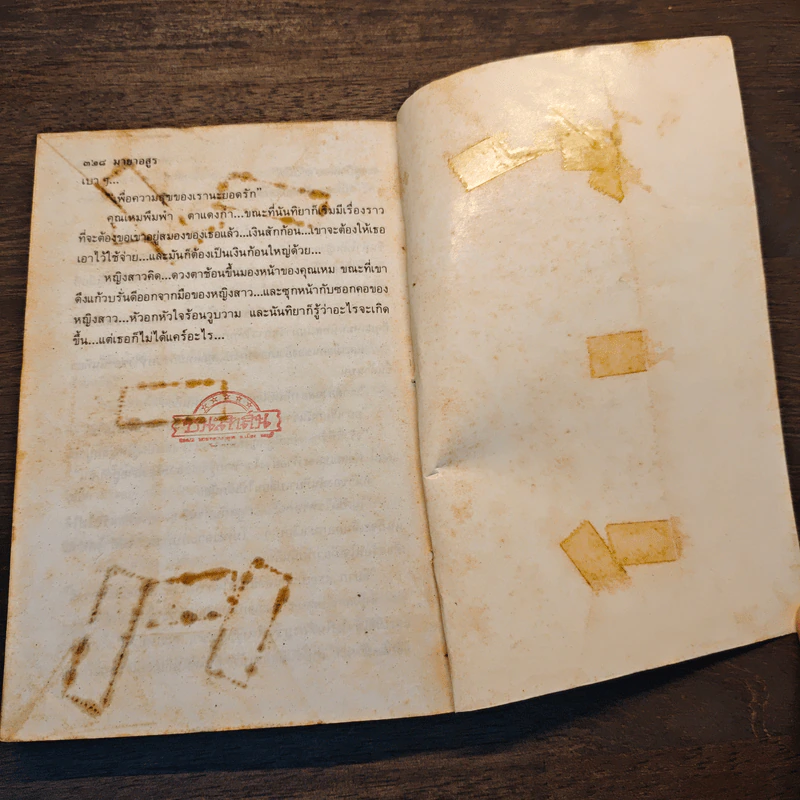 ๓๒๘ มายาอสูร
เบา ๆ...
"เพื่อความสุขของเรานะยอดรัก"
คุณเหมพึมพำ ตาแดงก่ำ...ขณะที่นันทิยาก็เริ่มมีเรื่องราว
ที่จะต้องขอเขาอยู่สมองของเธอแล้ว...เงินสักก้อน...เขาจะต้องให้เธอ
เอาไว้ใช้จ่าย...และมันก็ต้องเป็นเงินก้อนใหญ่ด้วย...
หญิงสาวคิด...ดวงตาช้อนขึ้นมองหน้าของคุณเหม ขณะที่เขา
ดึงแก้วบรั่นดีออกจากมือของหญิงสาว...และซุกหน้ากับซอกคอของ
หญิงสาว...หัวอกหัวใจร้อนวูบวาม และนันทิยาก็รู้ว่าอะไรจะเกิด
ขึ้น...แต่เธอก็ไม่ได้แคร์อะไร...